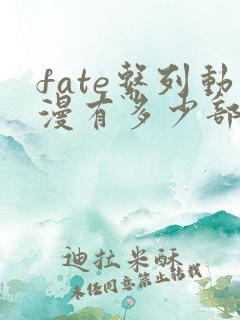 fate系列動
漫有多少部
迪拉米酥
未经同意禁止转载